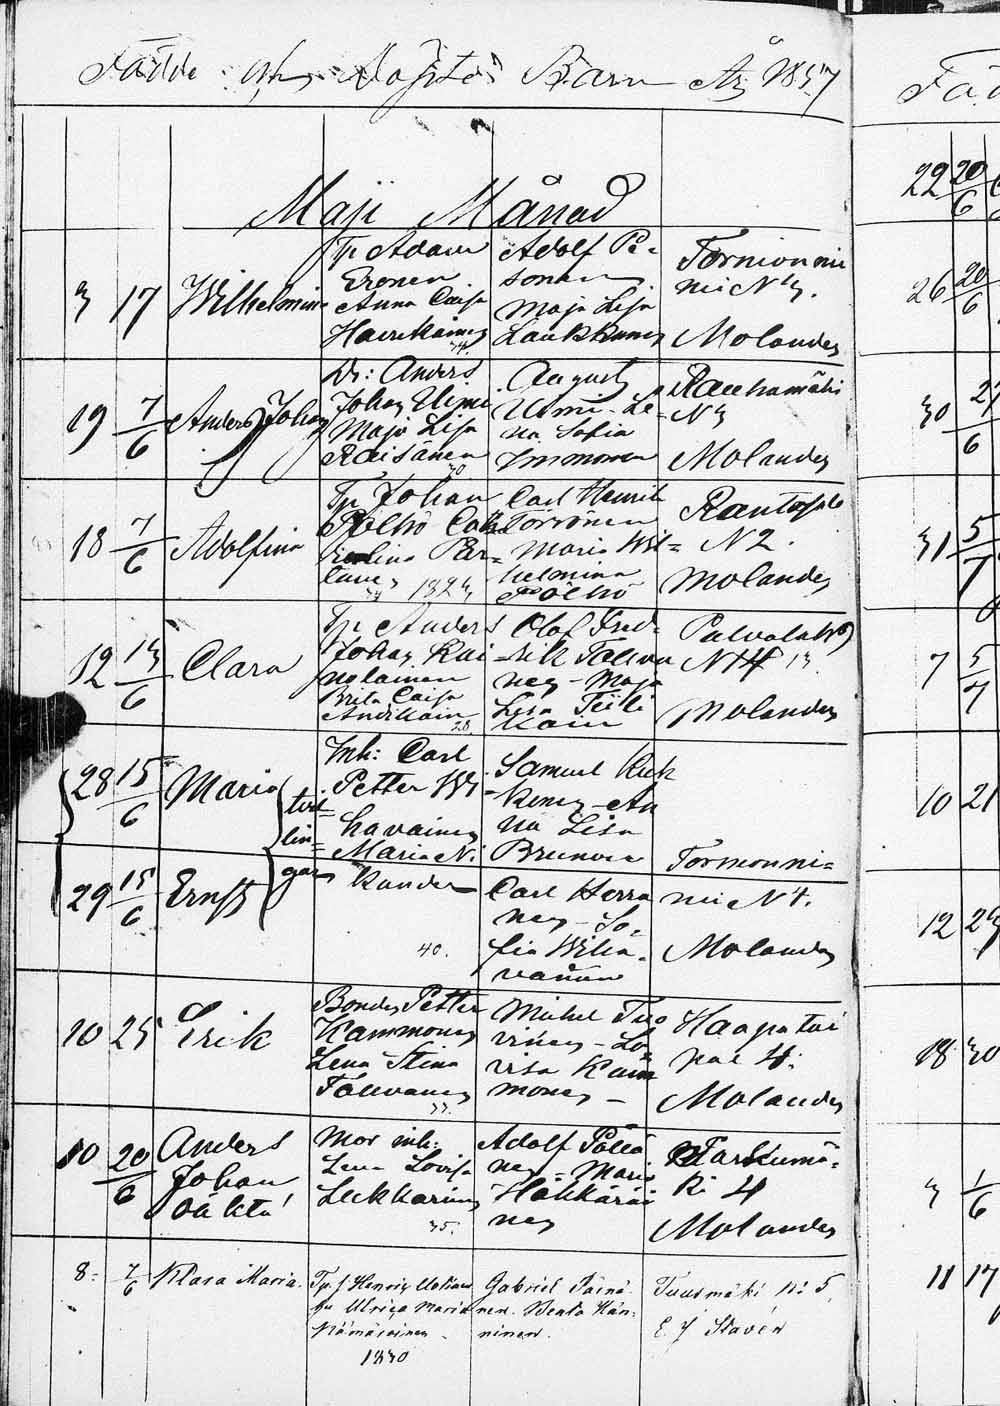 Födde och Döpte Barn År 1857
Maji Månad
3 17 Wilhelmina
Tp Adam
Eronen
Anna Caisa
Haverikainen
34.
Adolf Pe-
sonen
Maja Lisa
Laukkanen
Tornionnie
mi N 3.
Molander
19 7/6 Anders Johan
Dr: Anders
Johan Uimi
Maja Lisa
Räisänen
30
August
Uimi - Le-
na Sofia
Immonen
Rauhamäki
N 3
Molander
18 7/6 Adolfina
Tp Johan
Pölhö Cath
Elina Par-
tanen
34 1823
Carl Henrik
Törrönen
Maria Wil-
helmina
Pölhö
Rantasalo
N 2.
Molander
12 13/6 Clara
Tp Anders
Johan Kai-
nolainen
Brita Caisa
Andikain
28
Olof Fred-
rik Tolva
nen - Maja
Lisa Teili
kain
Palvalaks
N 14 13
Molander
28 15/6 Maria
29 15/6 Ernst
tvil-
lin-
gar
Inh: Carl
Petter Wi-
havainen
Maria Ni-
kander
40.
Samuel Kuk
konen - An
na Lisa
Brunou
Carl Herra
nen - So-
fia Wiha-
vainen
Tornionni-
mi N 4.
Molander
10 25 Erik
Bonden Petter
Kammonen
Lena Stina
Tolvanen
33.
Michel Tuo
vinen - Lo
visa Kam
monen -
Haapatai
pal 4.
Molander
10 20/6 Anders
Johan
Oäkta
Mor inh:
Lena Lovisa
Lukkarinen
35.
Adolf Pöllä
nen - Maria
Häkkäräi
nen
Harkumä-
ki 4
Molander
8. 7/6 Klara Maria.
Tp. f Henric
hu Ulrica Maria
Hämäläinen.
1830
Gabriel Päivi-
nen. Beata Hän-
ninen.
Tuusmäki No 5.
E J Stavén
Föd
22 20/6
26 20/6
30 21/6
31 5/7
7 5/7
10 21
12 23
18 30
3 1/6
11 17